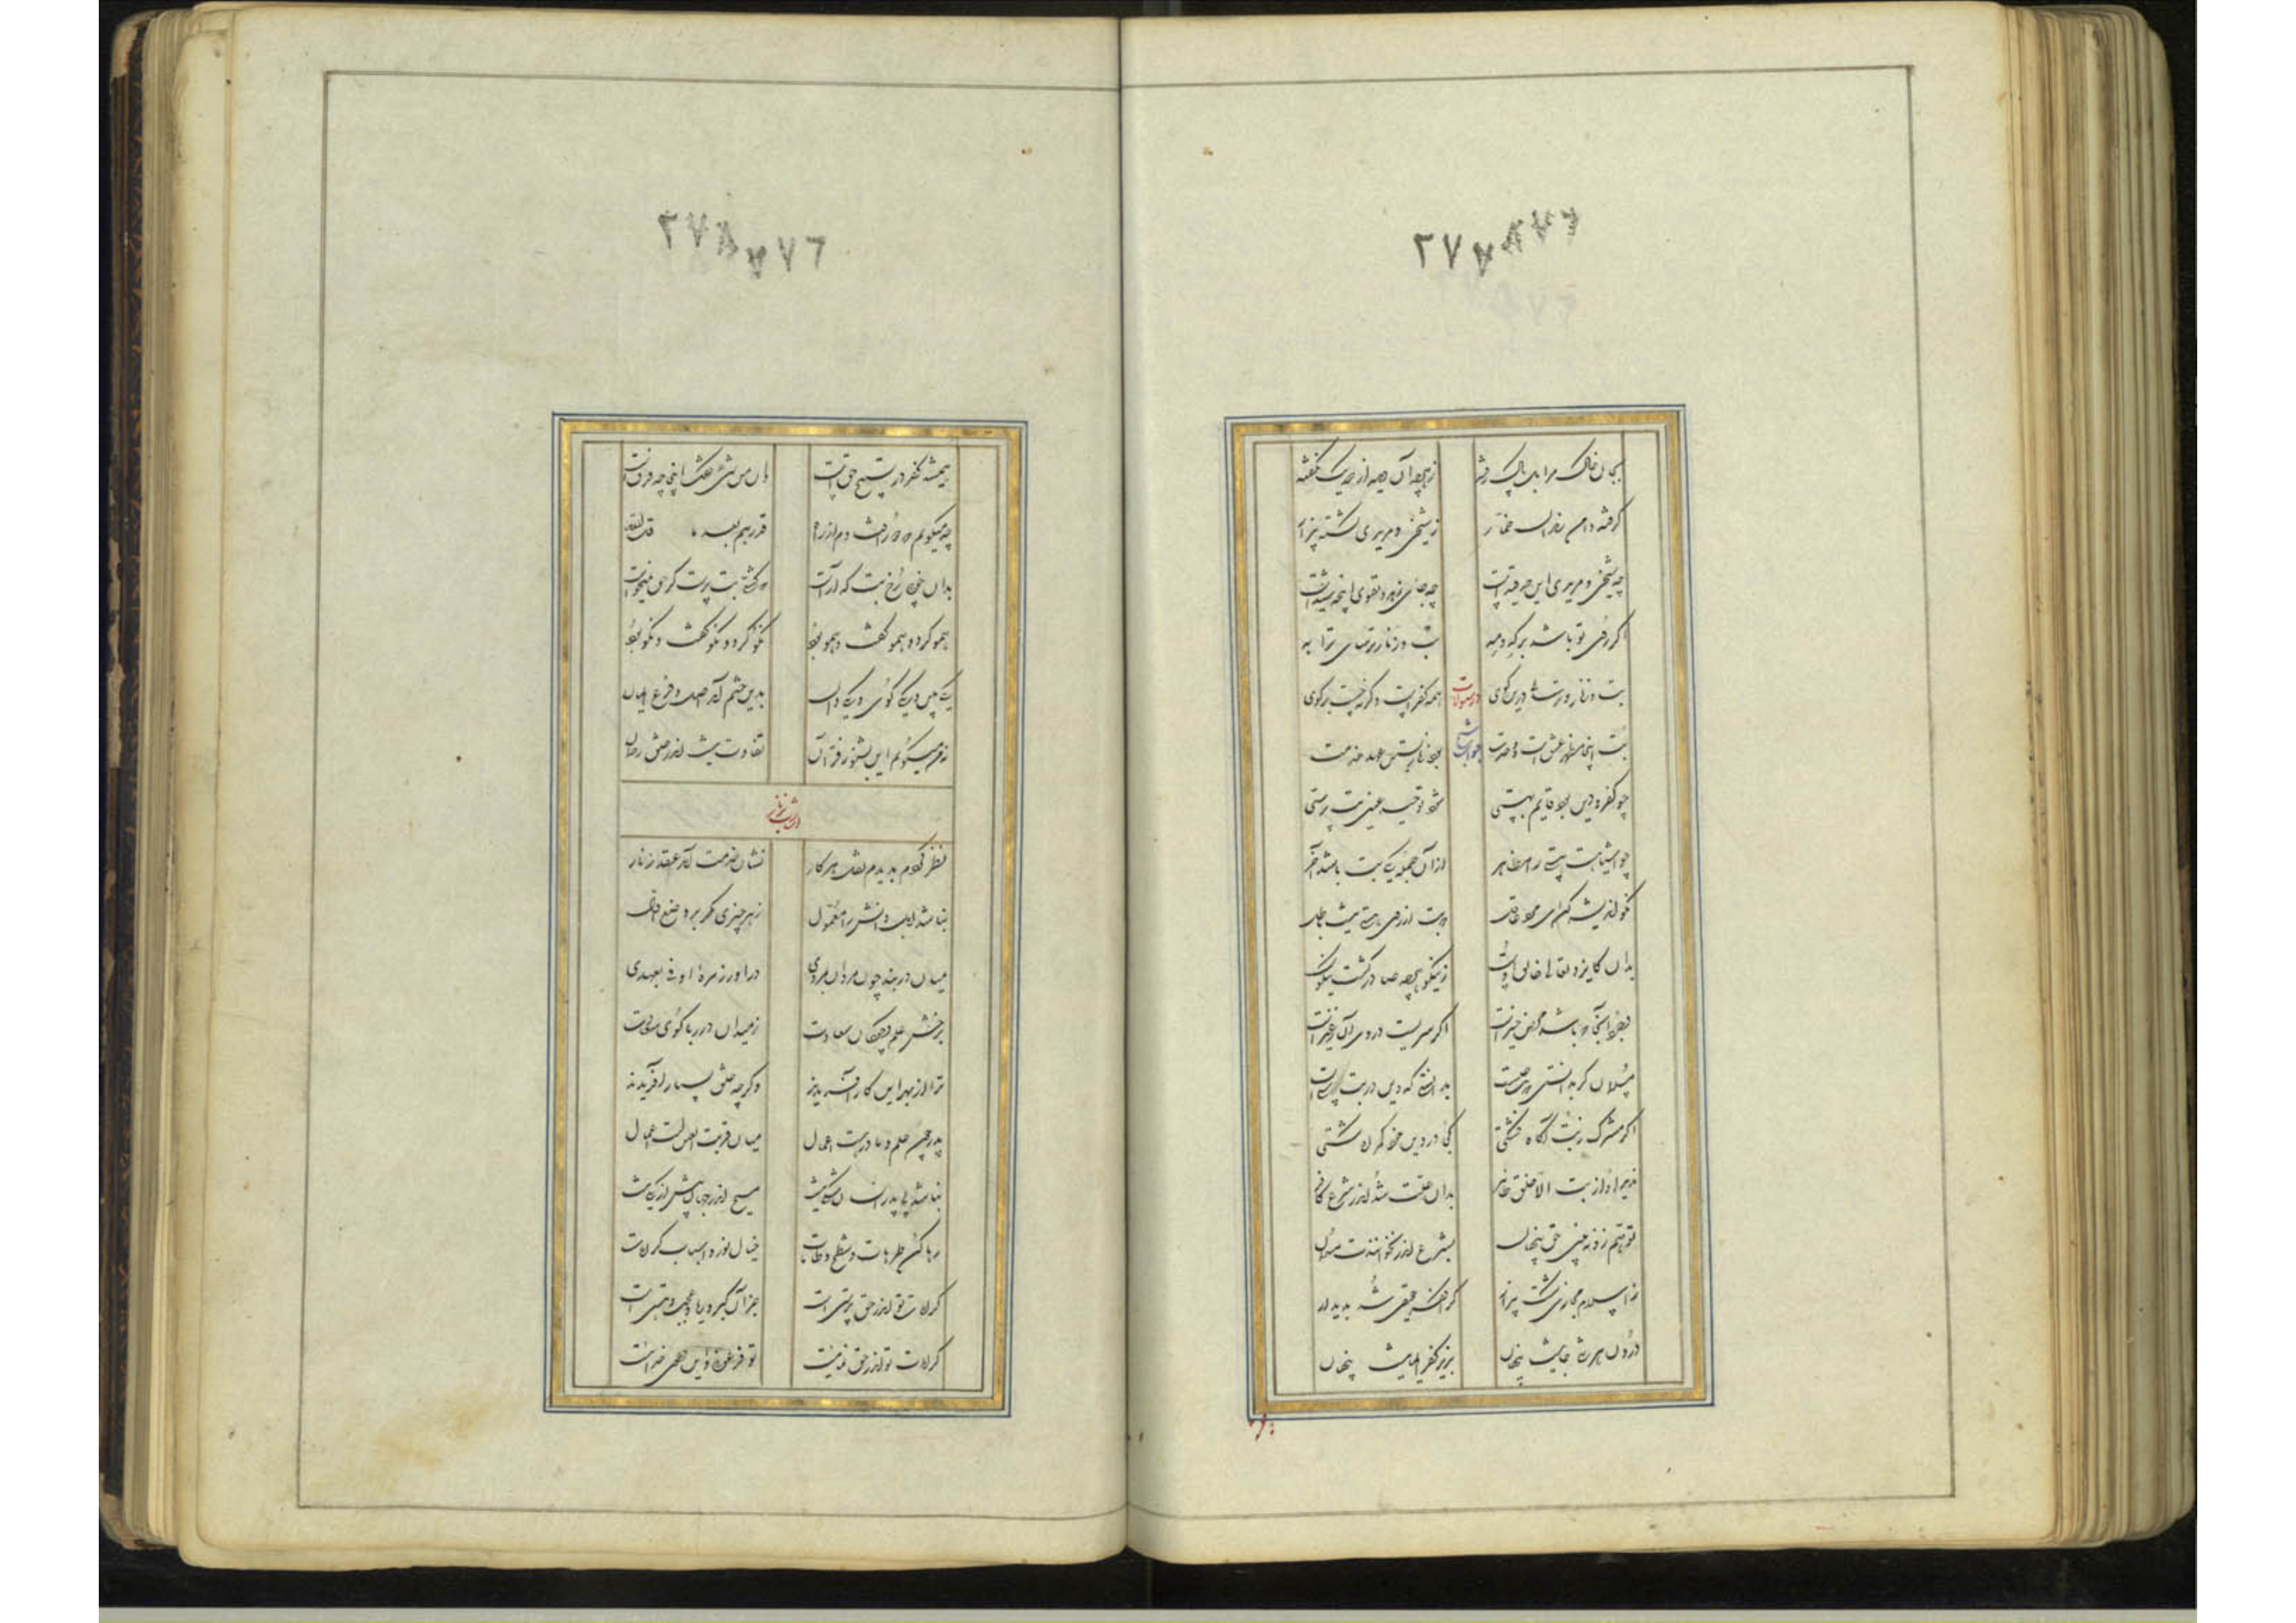 ٢٧٨٨٧٦
بمژکان خاک مزابل پاک رفته ز هر چه آن دیده از صد یک نگفته
گرفته دامن رندان خمار ز شیخی و مریدی گشته بیزار
چه شیخی و مریدی این چه قید است چه جای زهد و تقوی اینچه شید است
اگر روی تو باشد بر که و مه بت و زنار و ترسائی ترا به
بت و زنار و ترسائی درین کوی همه کفر است و گرنه چیست بر کوی
بت اینجا مظهر عشق است و وحدت بود زنار بستن عهد خدمت
چو کفر و دین بود قایم بهستی شود توحید عین بت پرستی
چو اشیا هست هستی را مظاهر از آن جمله یکی بت باشد آخر
نکو اندیشه کن ای مرد عاقل که بت از روی هستی نیست باطل
بدان کایزد تعالی خالق اوست ز نیکو هر چه صادر گشت نیکوست
وجود آنجا که باشد محض خیر است اگر شریست در وی آن ز غیر است
مسلمان گر بدانستی که بت چیست بدانستی که دین در بت پرستیست
اگر مشرک ز بت آگاه گشتی کجا در دین خود گمراه گشتی
ندید او از بت الا خلق ظاهر بدان علت شد اندر شرع کافر
تو هم گر زو نبینی حق پنهان بشرع اندر نخوانندت مسلمان
ز اسلام مجازی گشت بیزار کرا کفر حقیقی شد پدیدار
درون هر بتی جانیست پنهان بزیر کفر ایمانیست پنهان
٢٧٨٧٧٦
همیشه کفر در تسبیح حق است وان من شیء گفت اینجا چه فرقست
چه میگویم که دور افتادم از راه فذرهم بعد ما قل الله
بدان خوبی رخ بت که آراست که گشتی بت پرست گر حق نمیخواست
همو کرد و همو گفت و همو بود نکو کرد و نکو گفت و نکو بود
یکی بین و یکی گوی و یکی دان بدین ختم آمد اصل و فرع ایمان
نه من میگویم این بشنو ز قرآن تفاوت نیست اندر خلق رحمان
اشارت بزنار
نظر کردم بدیدم اصل هر کار نشان خدمت آمد عقد زنار
نباشد اهل دانش را معول ز هر چیزی مگر بر وضع اول
میان در بند چون مردان بمردی درآ در زمره اوفوا بعهدی
برخش علم و چوگان سعادت ز میدان در ربا گوی سعادت
ترا از بهر این کار آفریدند و گرچه خلق بسیار آفریدند
پدر چون علم و مادر هست اعمال میان قرة العین است احوال
نباشد بی پدر انسان شکی نیست مسیح اندر جهان بیش از یکی نیست
رها کن طرهات و شطح و طامات خیال نور و اسباب کرامات
کرامات تو اندر حق پرستی است جز آن کبر و ریا و عجب و هستی است
کرامات تو گر در خودنمائیست تو فرعونی و این دعوی خدائیست